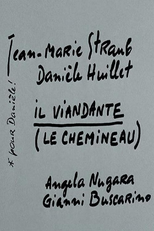 Jean-Marie Straub
Danièle Huillet
IL VIANDANTE
(LE CHEMINEAU)
Angela Nugara
Gianni Buscarino
* pour Danièle!